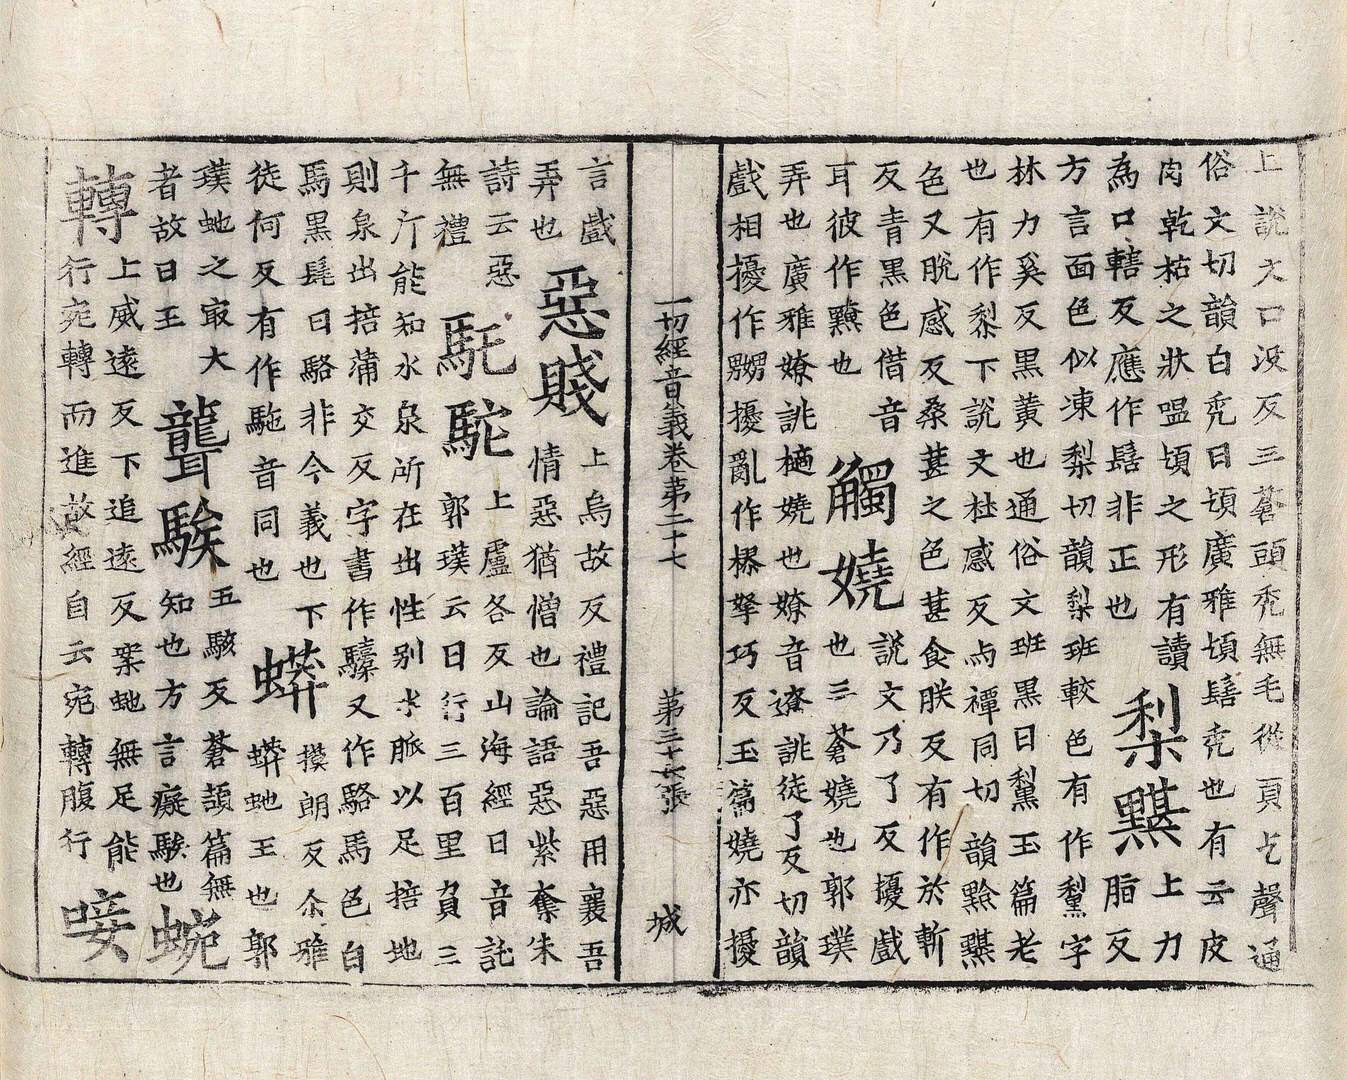 上說文口没反三蒼頭禿無毛從頁乞聲通
俗文切韻白禿曰頎廣雅頎鬝禿也有云皮
肉乾枯之狀嗢頎之形有讀
為口轄反應作鬝非正也 梨黮 上力脂反
方言面色似凍梨切韻梨班駮色有作黧字
林力奚反黑黃也通俗文班黑曰黧玉篇老
也有作黎下說文杜感反与禫同切韻黤黮
色又脫感反桑葚之色葚食朕反有作於斬
反青黑色借音 觸嬈 說文乃了反擾戲
耳彼作黰也 也三蒼嬈也郭璞
弄也廣雅嫽誂嬈也嫽音遼誂徒了反切韻
戲相擾作嬲擾亂作㨻拏巧反玉篇嬈亦擾
一切經音義卷第二十七 第三十八張 城
言戲弄也 惡賤 上烏故反禮記吾惡用襄吾
情惡猶憎也論語惡紫奪朱
詩云惡無禮 馲駝 上盧各反山海經曰音託
郭璞云曰行三百里負三
千斤能知水泉所在出性别水脈以足掊地
則泉出掊蒲交反字書作驝又作駱馬色白
馬黑髦曰駱非今義也下
徒何反有作駞音同也 蟒 摸朗反尒雅
蟒虵王也郭
璞虵之㝡大者故曰王 聾騃 五駭反蒼頡篇無
知也方言癡騃也 蜿
轉 上威遠反下追遠反案虵無足能
行宛轉而進故經自云宛轉腹行 唼